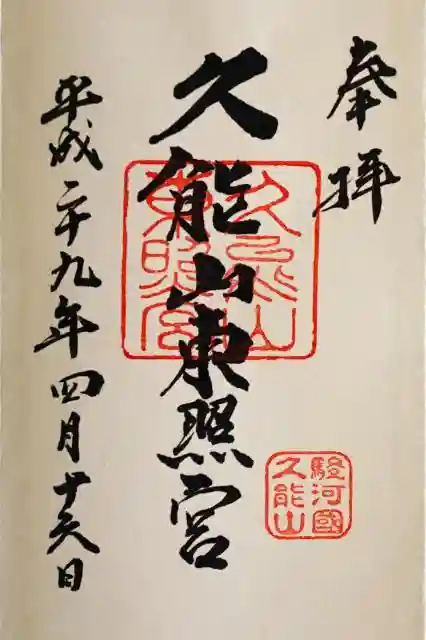 奉拝
久能山東照宮
久能山
東照宮
駿河國
久能山
平成二十九年四月廿六日